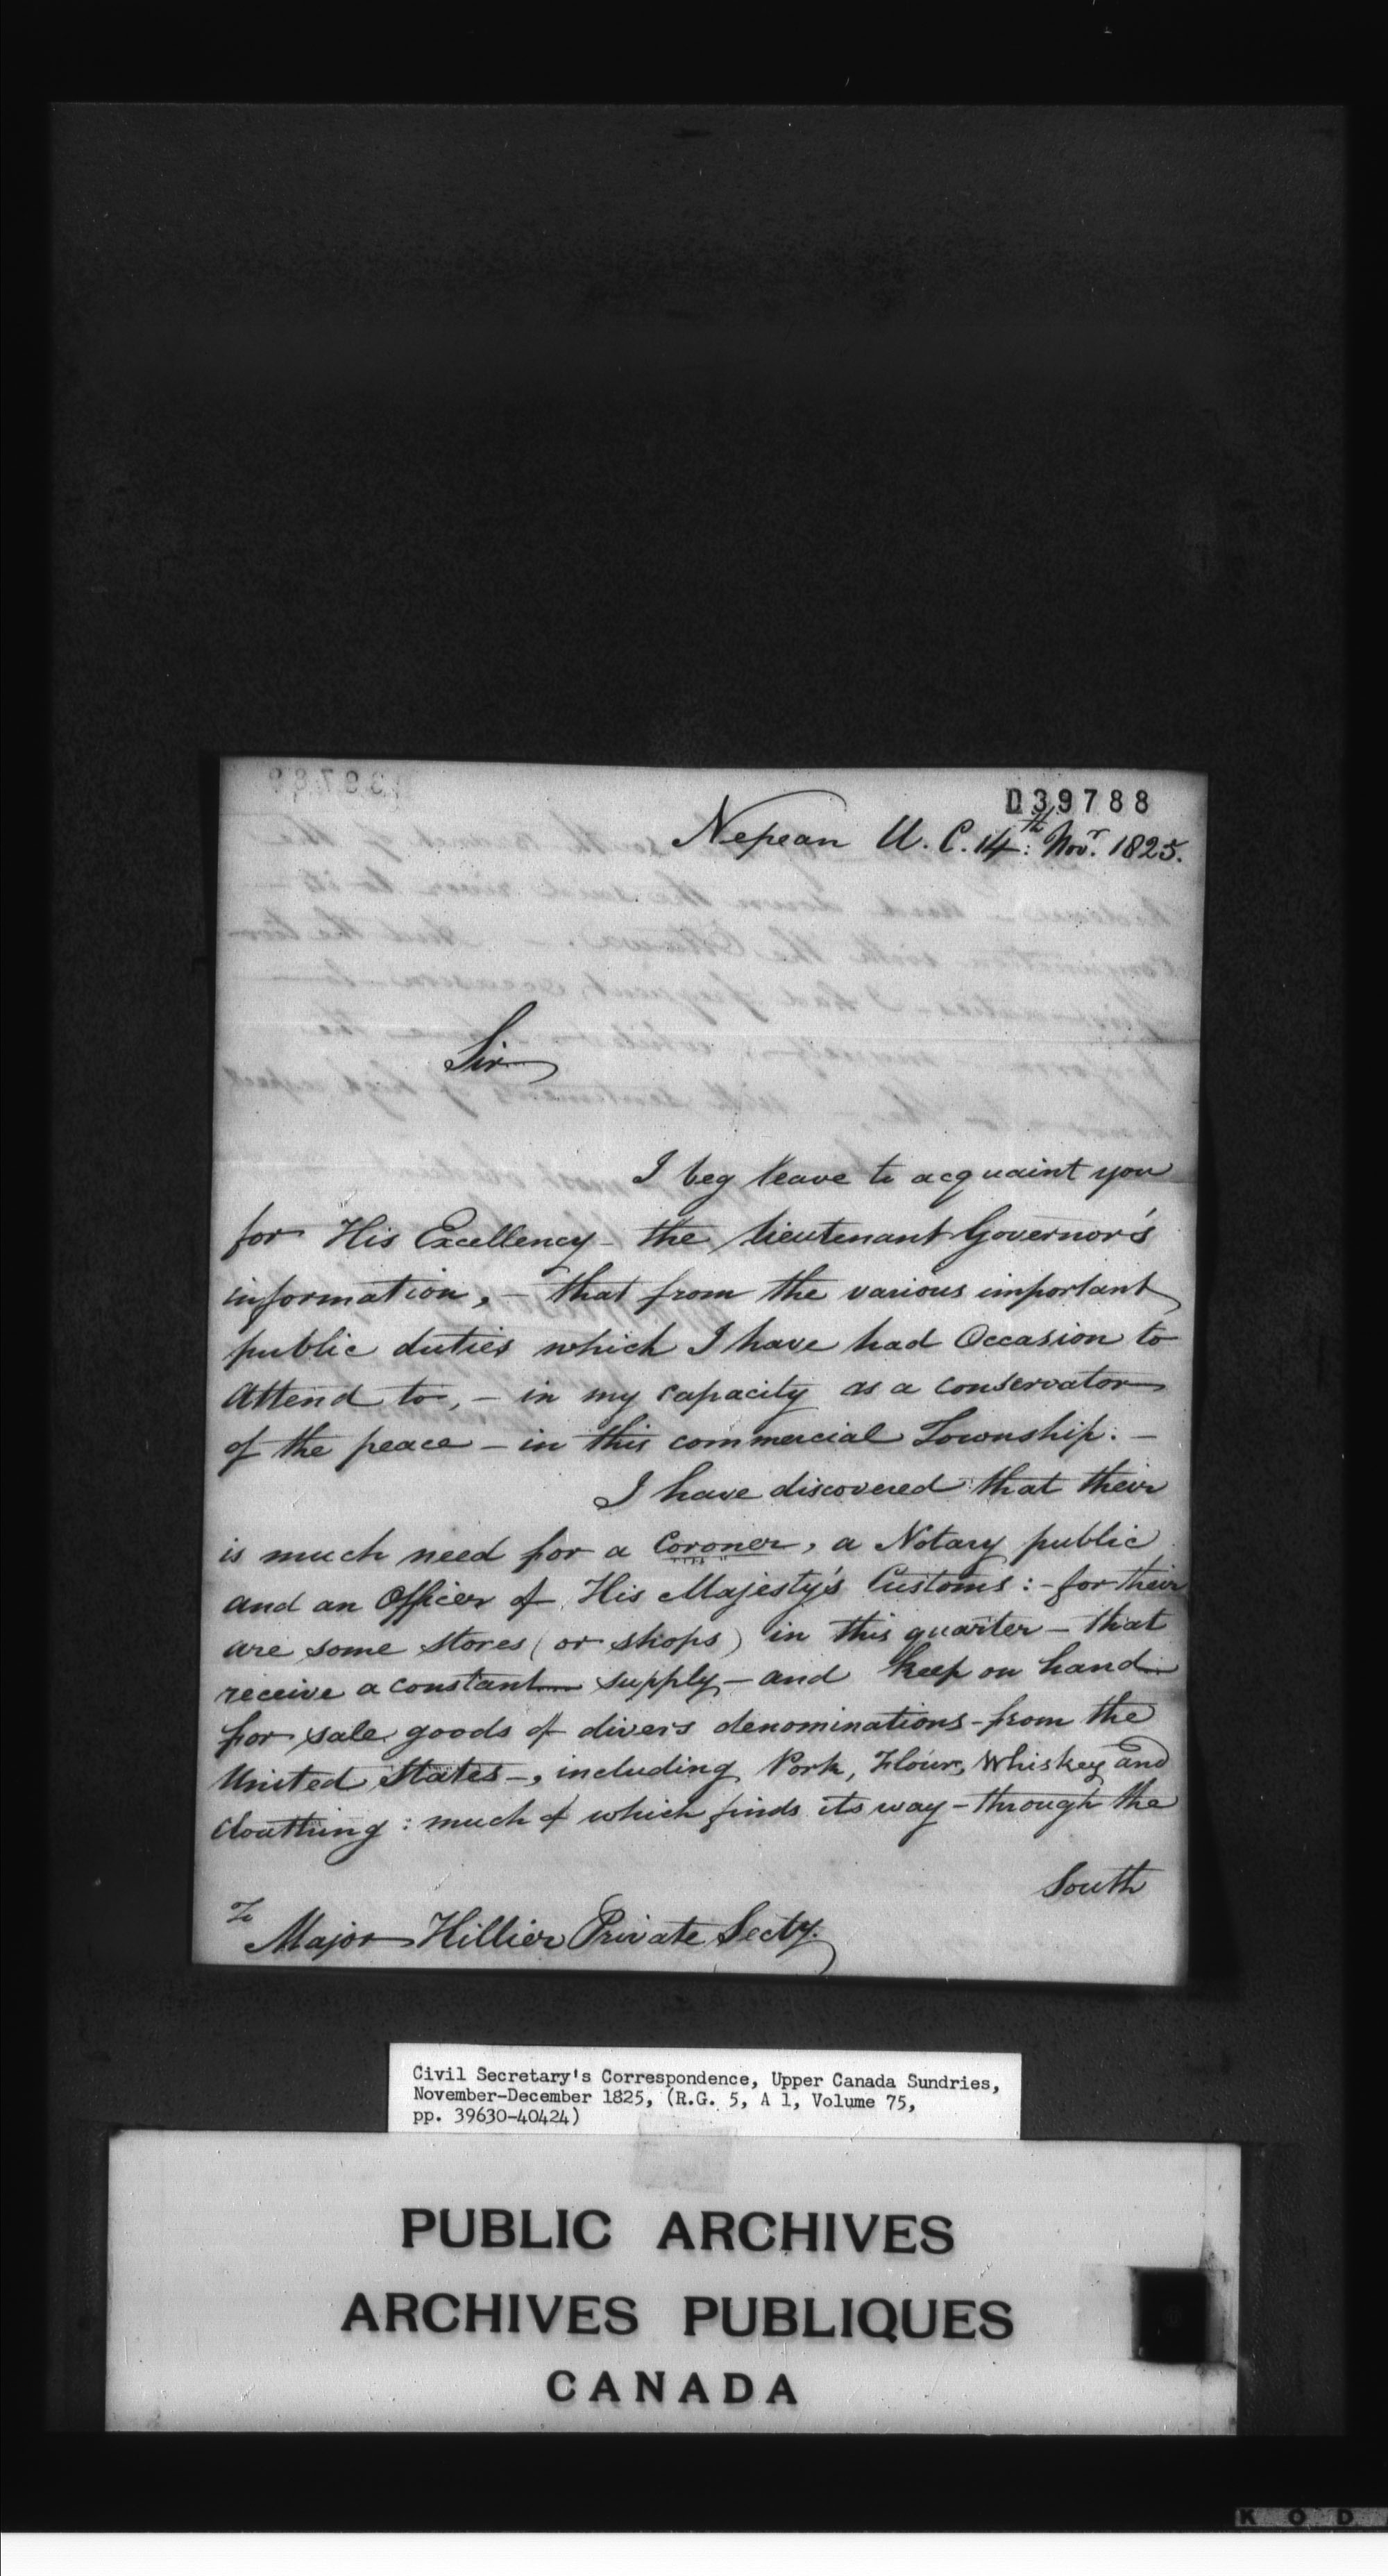 D39788
Nepean U. C. 14th: Novr. 1825.
Sir
I beg leave to acquaint you
for His Excellency - the lieutenant Governor's
information, - that from the various important
public duties which I have had Occasion to
Attend to, - in my capacity as a conservator
of the peace - in this commercial Township: -
I have discovered that their
is much need for a Coroner, a Notary public
and an Officer of His Majesty's Customs: - for their
are some stores (or shops) in this quarter - that
receive a constant supply - and keep on hand
for sale goods of divers denominations - from the
United States -, including Pork, Flour, Whiskey and
Cloathing: much of which finds its way - through the
South
To
Major Hillier Private Secty.
Civil Secretary's Correspondence, Upper Canada Sundries,
November-December 1825, (R.G. 5, A 1, Volume 75,
pp. 39630-40424)
PUBLIC ARCHIVES
ARCHIVES PUBLIQUES
CANADA
KOD